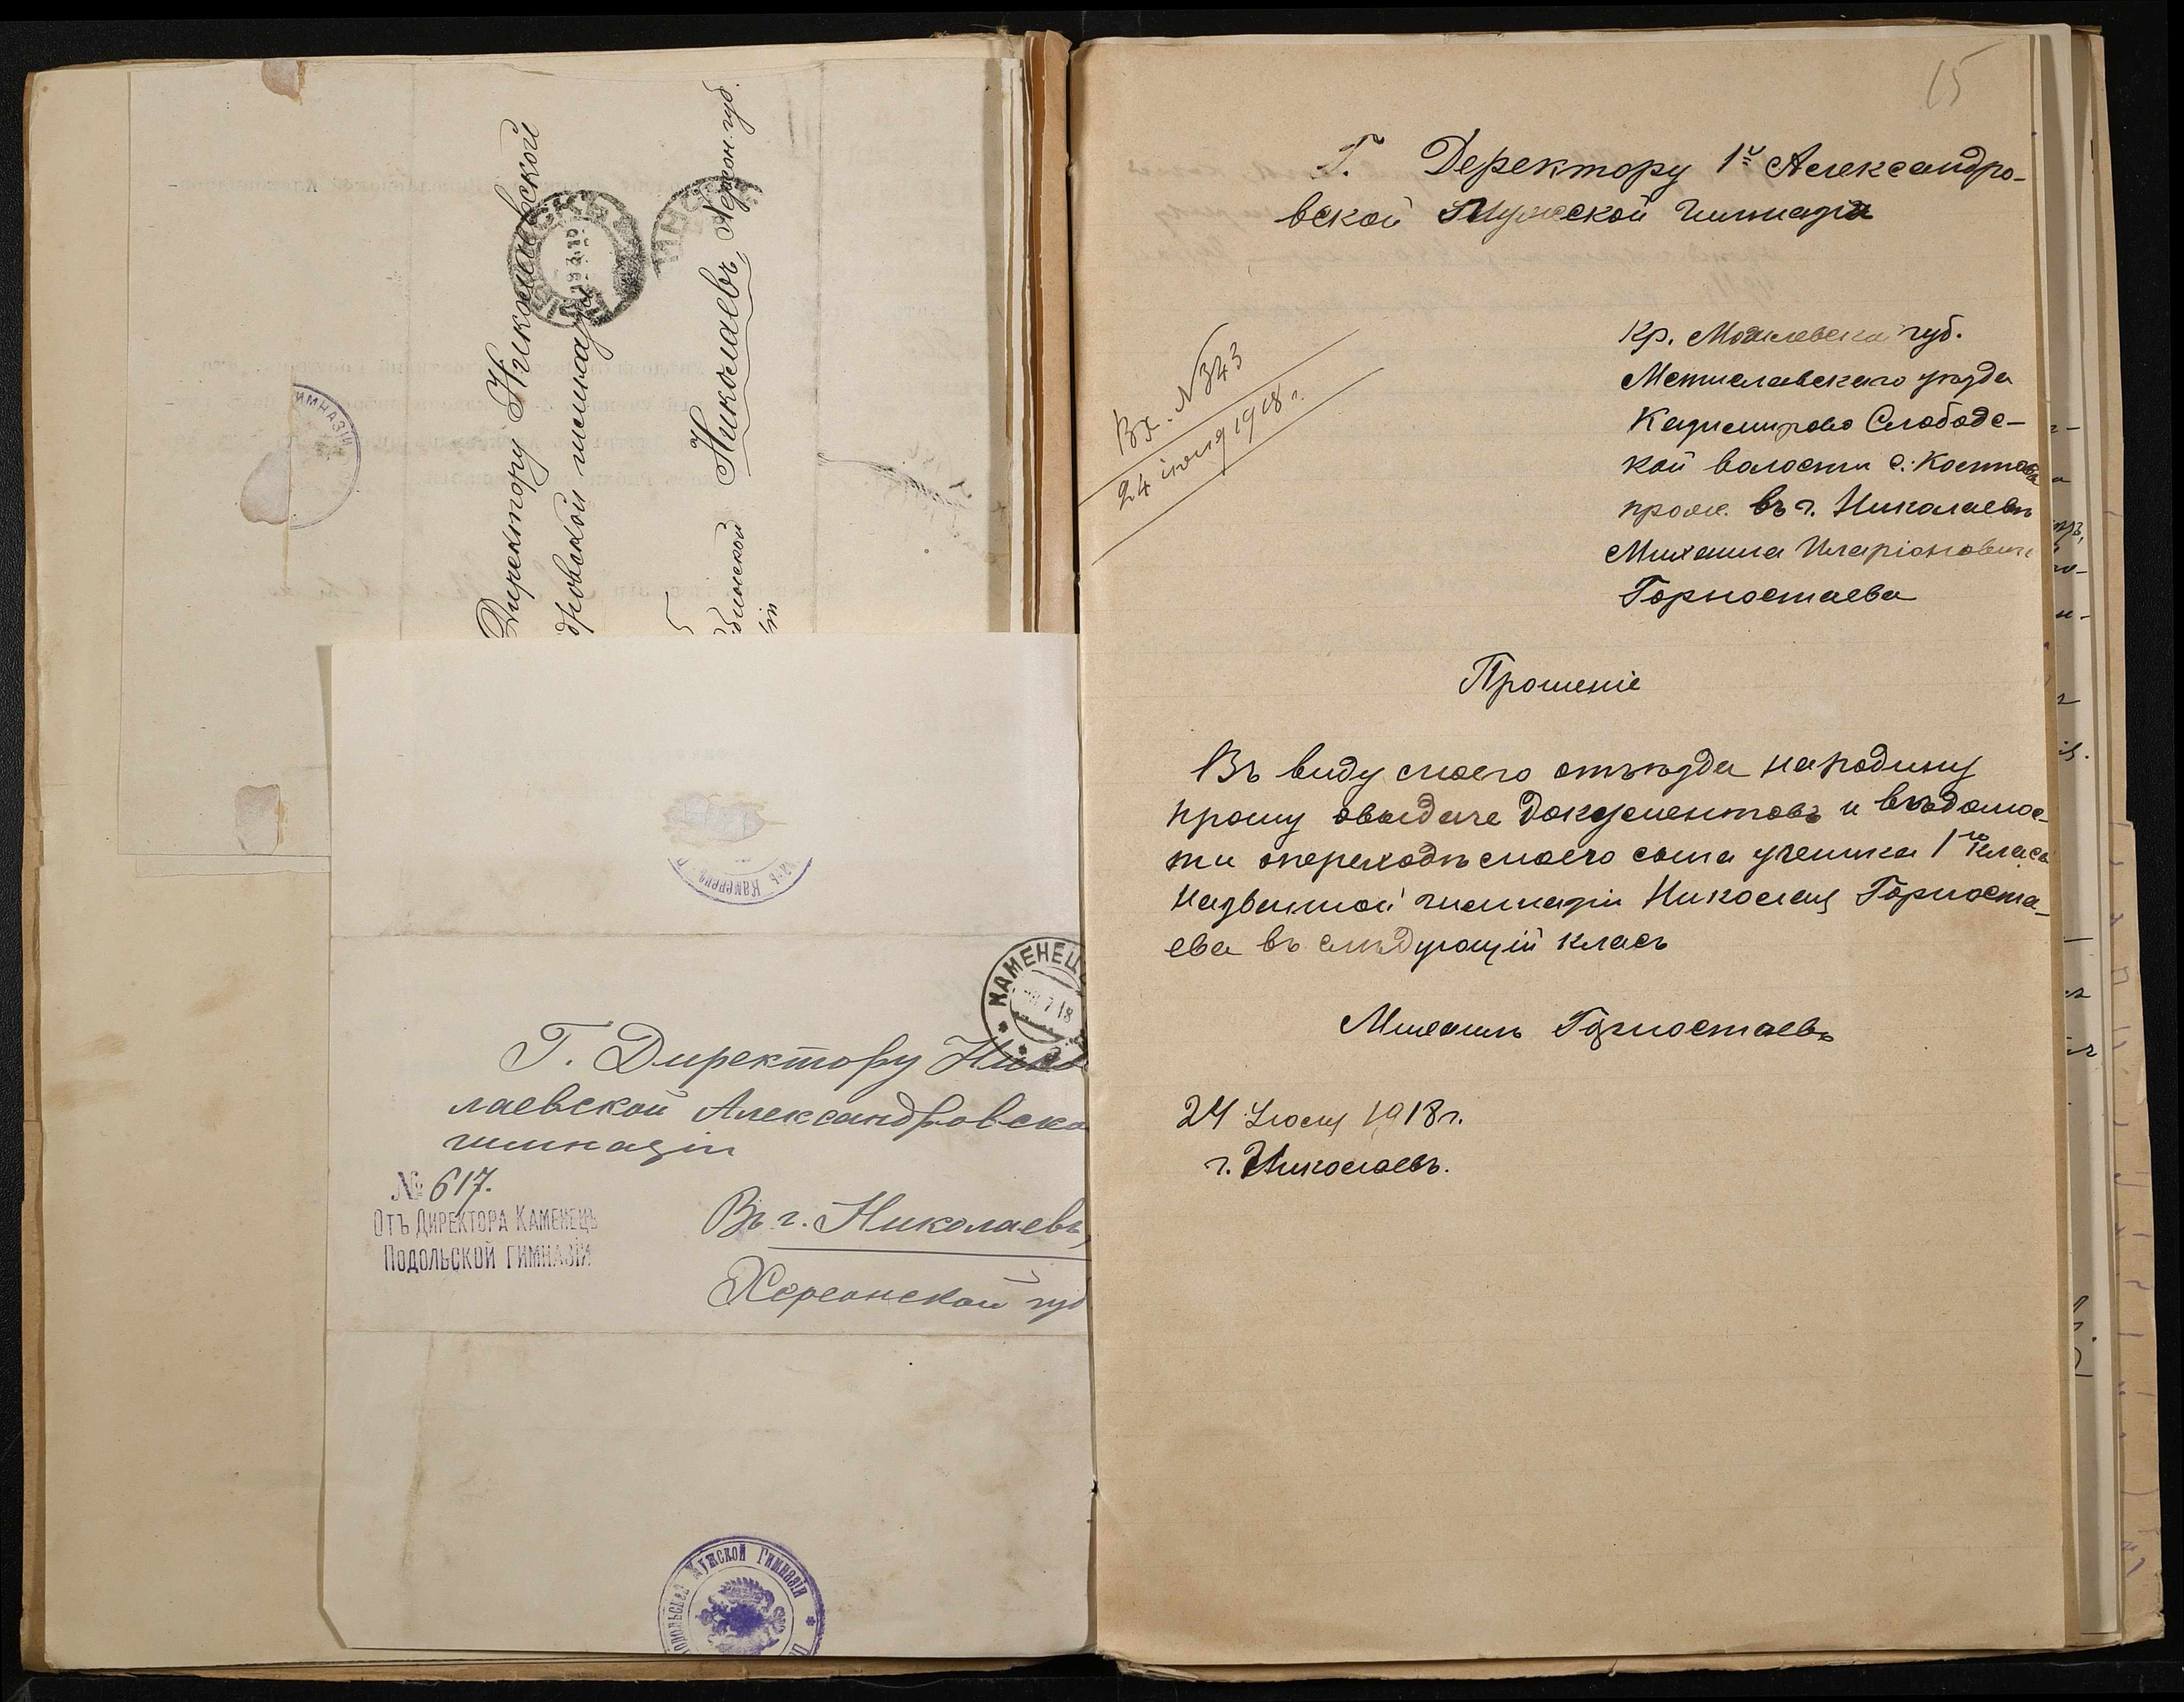 Директору Николаевской
дровской гимназіи
Николаевъ, Херсон. губ.
ИМНАЗІИ
КАМЕНЕЦ
7 18
Г. Директору Нико
лаевской Александровско
гимназіи
№ 617.
ОТЪ ДИРЕКТОРА КАМЕНЕЦЪ
ПОДОЛЬСКОЙ ГИМНАЗІИ
Въ г. Николаевъ,
Херсонской губ
Подольская Мужской Гимназіи
15
Г. Деректору 1й Александро-
вской Мужской Гимназіи
Вх. N 343
24 іюля 1918 г.
Кр. Могилевской губ.
Мстиславскаго уѣзда
Казимирово Слободс-
кой волости с. Костова
прож. въ г. Николаевѣ
Михаила Иларіоновича
Горностаева
Прошеніе
Въ виду моего отъѣзда народину
прошу овыдаче документовъ и вѣдомос-
ти опереходѣ моего сына ученика 1го класа
названной гимназіи Николая Горноста-
ева въ слѣдующій класъ
Михаилъ Горностаевъ
24 Іюля 1918 г.
г. Николаевъ.